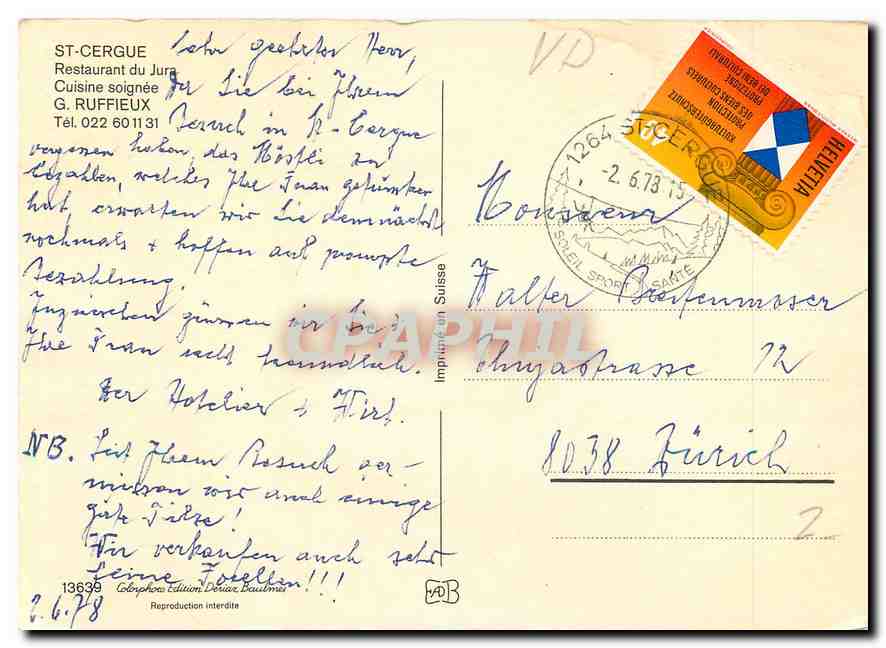 ST-CERGUE
Restaurant du Jura
Cuisine soignée
G. RUFFIEUX
Tél. 022 60 11 31
Sehr geehrter Herr,
Da Sie bei Ihrem
Besuch in St-Cergue
vergessen haben, das Rösti zu
bezahlen, welches Ihre Frau
hat, erwarten wir Sie demnächst
nochmals + hoffen auf prompte
Bezahlung.
Inzwischen grüssen wir Sie +
Ihre Frau recht freundlich.
Der Hotelier + Wirt.
NB. Seit Ihrem Besuch ver-
missen wir auch einige
gute Pilze!
Wir verkaufen auch sehr
feine Forellen!!!
13639 Colorphoto Edition Dériaz, Baulmes
Reproduction interdite
2.6.78
Imprimé en Suisse
VD
1264 ST-CERGUE
-2.6.78-15
SOLEIL SPORT SANTÉ
HELVETIA
KULTURGÜTERSCHUTZ
PROTECTION
DES BIENS CULTURELS
PROTEZIONE
DEI BENI CULTURALI
Monsieur
Walter Breitenmoser
72
8038 Zürich
2
CPAPHIL